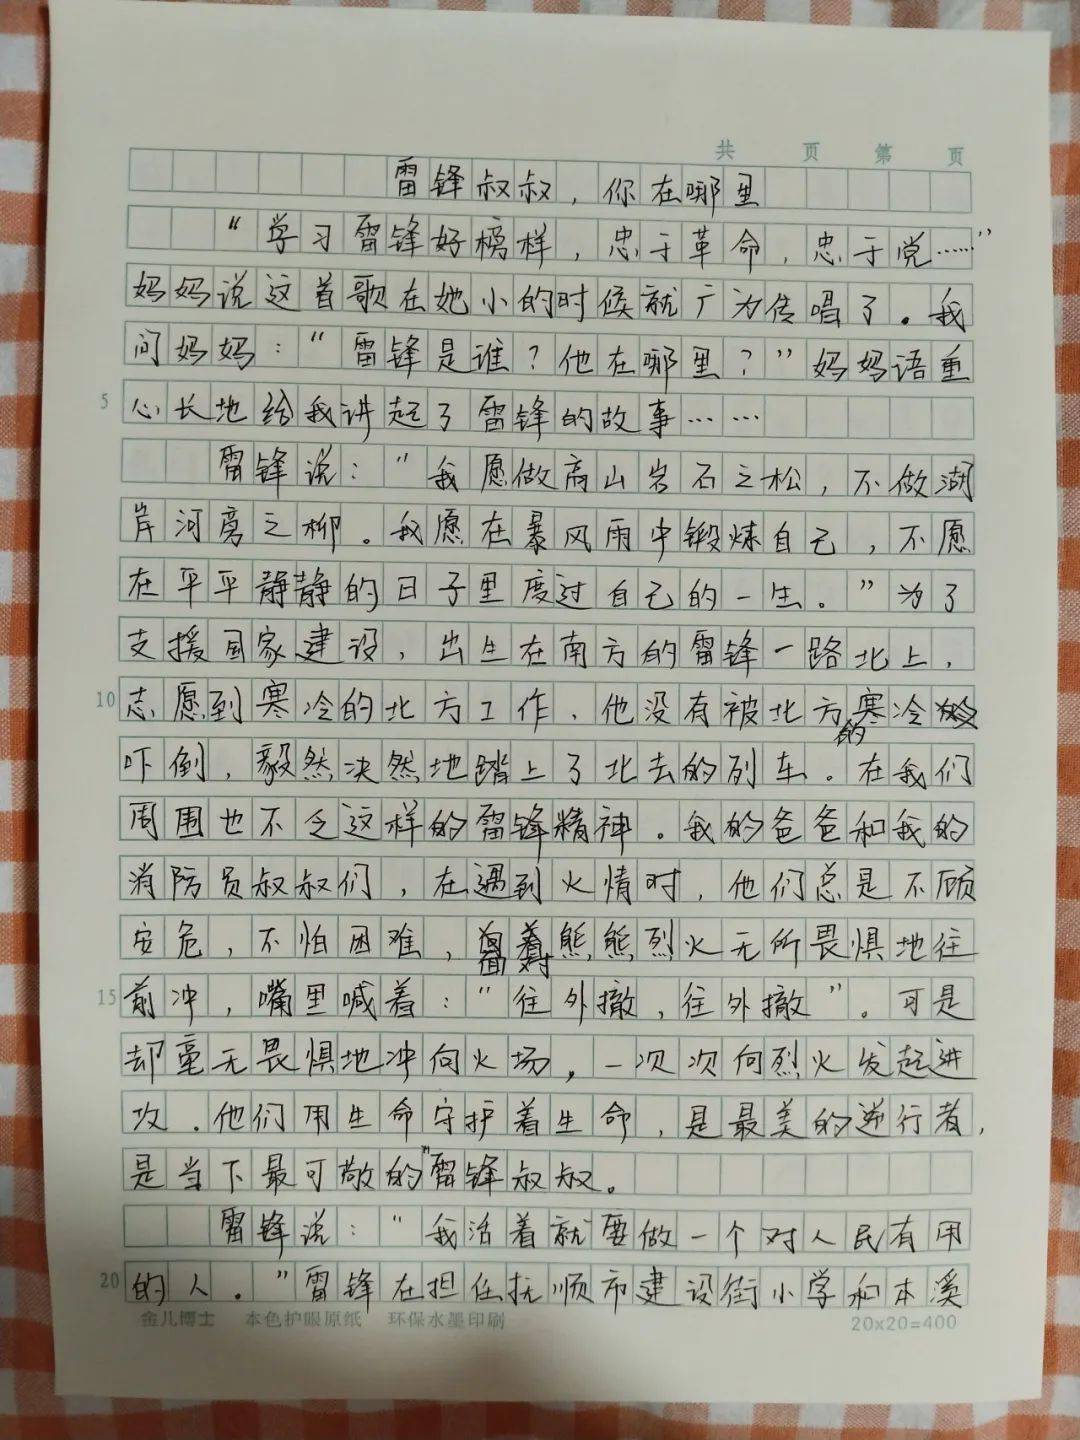 共 页 第 页
雷锋叔叔，你在哪里
“学习雷锋好榜样，忠于革命，忠于党……”
妈妈说这首歌在她小的时候就广为传唱了。我
问妈妈：“雷锋是谁？他在哪里？”妈妈语重
5 心长地给我讲起了雷锋的故事……
雷锋说：“我愿做高山岩石之松，不做湖
岸河旁之柳。我愿在暴风雨中锻炼自己，不愿
在平平静静的日子里度过自己的一生。”为了
支援国家建设，出生在南方的雷锋一路北上，
10 志愿到寒冷的北方工作、他没有被北方的寒冷
吓倒，毅然决然地踏上了北去的列车。在我们
周围也不乏这样的雷锋精神。我的爸爸和我的
消防员叔叔们，在遇到火情时，他们总是不顾
安危，不怕困难，面对熊熊烈火无所畏惧地往
15 前冲，嘴里喊着：“往外撤，往外撤”。可是
却毫无畏惧地冲向火场，一次次向烈火发起进
攻．他们用生命守护着生命，是最美的逆行者，
是当下最可敬的“雷锋叔叔。
雷锋说：“我活着就要做一个对人民有用
20 的人．”雷锋在担任抚顺市建设街小学和本溪
金儿博士 本色护眼原纸 环保水墨印刷 20x20=400